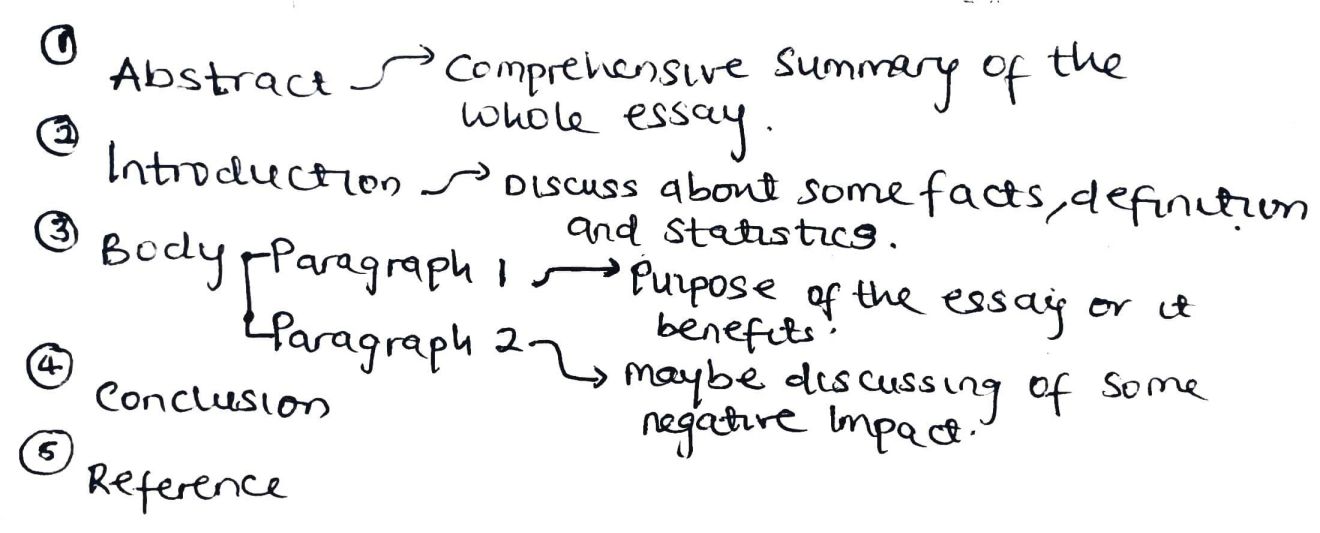 ① Abstract → Comprehensive summary of the
whole essay.
② Introduction → Discuss about some facts, definition
and statistics.
③ Body Paragraph 1 → Purpose of the essay or it
benefits.
Paragraph 2 → maybe discussing of some
negative impact.
④ Conclusion
⑤ Reference